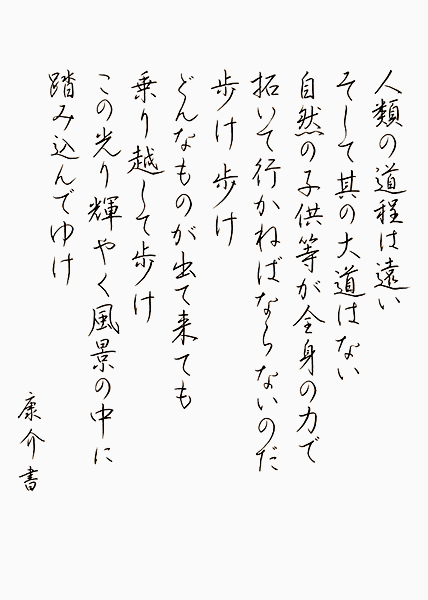 人類の道程は遠い
そして其の大道はない
自然の子供等が全身の力で
拓いて行かねばならないのだ
歩け歩け
どんなものが出て来ても
乗り越して歩け
この光り輝やく風景の中に
踏み込んでゆけ
康介書